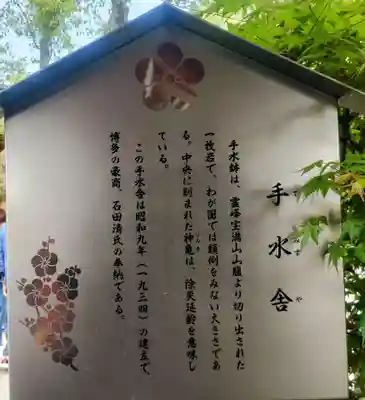 手水舎
て みず や
手水鉢は、霊峰宝満山山腹より切り出された
一枚岩で、わが国では類例をみない大きさであ
る。中央に刻まれた神亀は、除災延齢を意味し
しんき
ている。
この手水舎は昭和九年(一九三四)の建立で、
博多の豪商、石田清氏の奉納である。